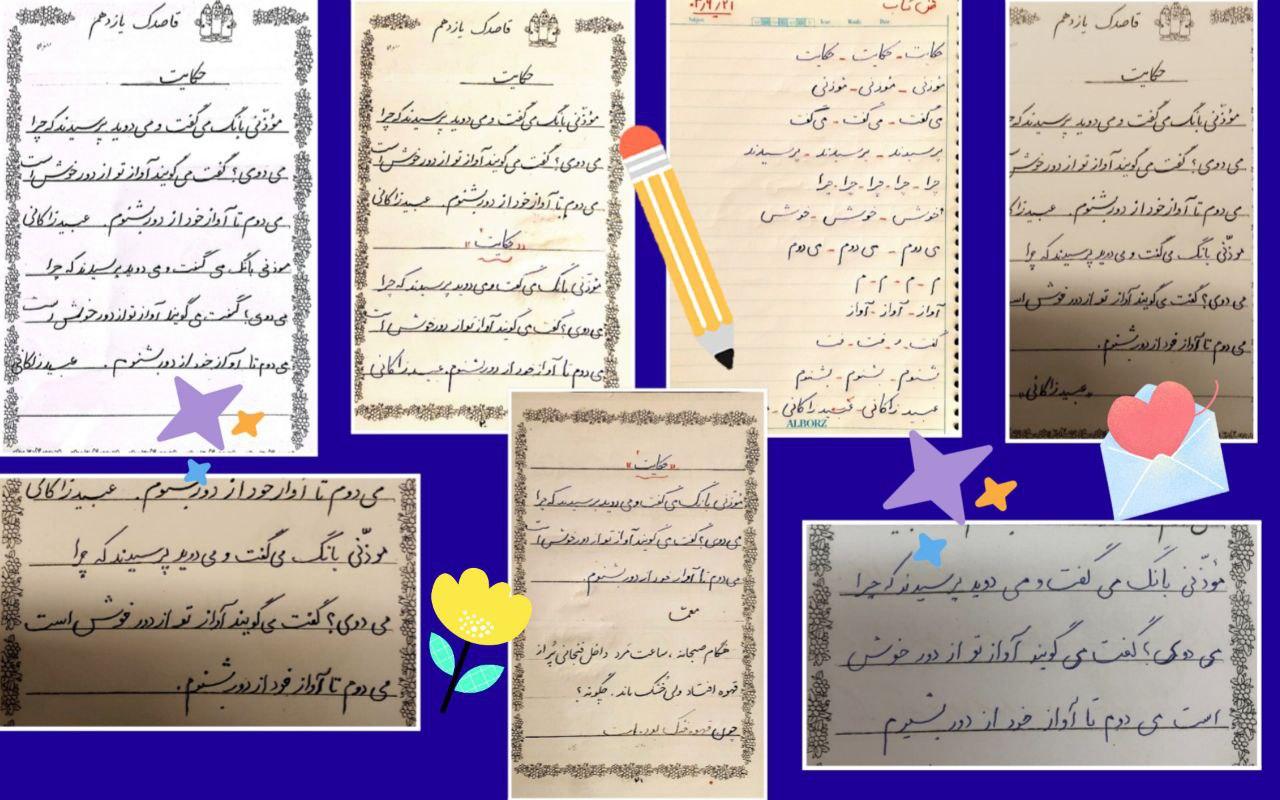 قاصدک یازدهم
حکایت
مؤذّنی بانگ می‌گفت و می‌دوید پرسیدند که چرا
می‌دوی؟ گفت می‌گویند آواز تو از دور خوش است
می‌دوم تا آواز خود از دور بشنوم. عبید زاکانی
موذنی بانگ می‌گفت و می‌دوید پرسیدند که چرا
می‌دوی؟ گفت می‌گویند آواز تو از دور خوش است
می‌دوم تا آواز خود از دور بشنوم. عبید زاکانی
قاصدک یازدهم
حکایت
مؤذّنی بانگ می‌گفت و می‌دوید پرسیدند که چرا
می‌دوی؟ گفت می‌گویند آواز تو از دور خوش است
می‌دوم تا آواز خود از دور بشنوم. عبید زاکانی
«حکایت»
مؤذّنی بانگ می‌گفت و می‌دوید پرسیدند که چرا
می‌دوی؟ گفت می‌گویند آواز تو از دور خوش است
می‌دوم تا آواز خود از دور بشنوم. عبید زاکانی
حکایت - حکایت - حکایت
موذنی - موذنی - موذنی
می‌گفت - می‌گفت - می‌گفت
پرسیدند - پرسیدند - پرسیدند
چرا - چرا - چرا - چرا
خوش - خوش - خوش
می‌دوم - می‌دوم - می‌دوم
م - م - م - م
آواز - آواز - آواز
بشنوم - بشنوم - بشنوم
عبید زاکانی - عبید زاکانی -
ALBORZ
قاصدک یازدهم
حکایت
مؤذّنی بانگ می‌گفت و می‌دوید پرسیدند که چرا
می‌دوی؟ گفت می‌گویند آواز تو از دور خوش
می‌دوم تا آواز خود از دور بشنوم.
موذّنی بانگ می‌گفت و می‌دوید پرسیدند که چرا
می‌دوی؟ گفت می‌گویند آواز تو از دور خوش
می‌دوم تا آواز خود از دور بشنوم.
«عبید زاکانی»
می‌دوم تا آواز خود از دور بشنوم. عبید زاکانی
موذّنی بانگ می‌گفت و می‌دوید پرسیدند که چرا
می‌دوی؟ گفت می‌گویند آواز تو از دور خوش است
می‌دوم تا آواز خود از دور بشنوم.
«حکایت»
مؤذّنی بانگ می‌گفت و می‌دوید پرسیدند که چرا
می‌دوی؟ گفت می‌گویند آواز تو از دور خوش است
می‌دوم تا آواز خود از دور بشنوم.
معما
هنگام صبحانه، ساعت مرد داخل فنجانی پُر از
قهوه افتاد ولی خشک ماند. چگونه؟
چون قهوه خشک بوده است
مؤذّنی بانگ می گفت و می دوید پرسیدند که چرا
می دوی؟ گفت می گویند آواز تو از دور خوش
است می دوم تا آواز خود از دور بشنوم